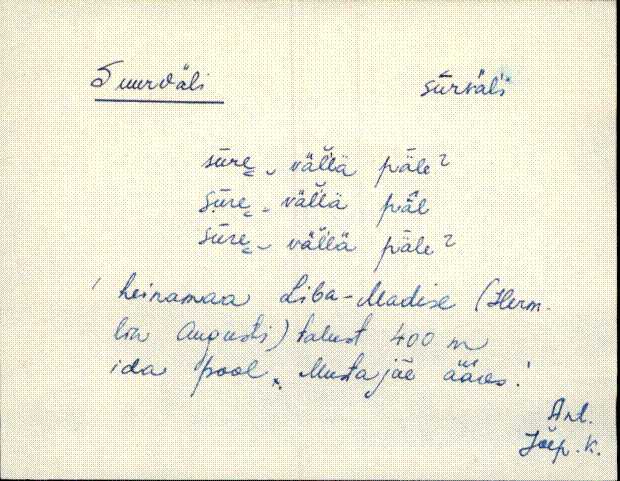 Suurväli sūrväli
sūre̬ - vällä päle²
sūre̬ - vällä päl
sūre̬ - vällä päle²
' heinamaa Liba-Madise (Herm-
lin Augusti) talust 400 m
ida pool, Mustajõe ääres.'
Jõep. K.